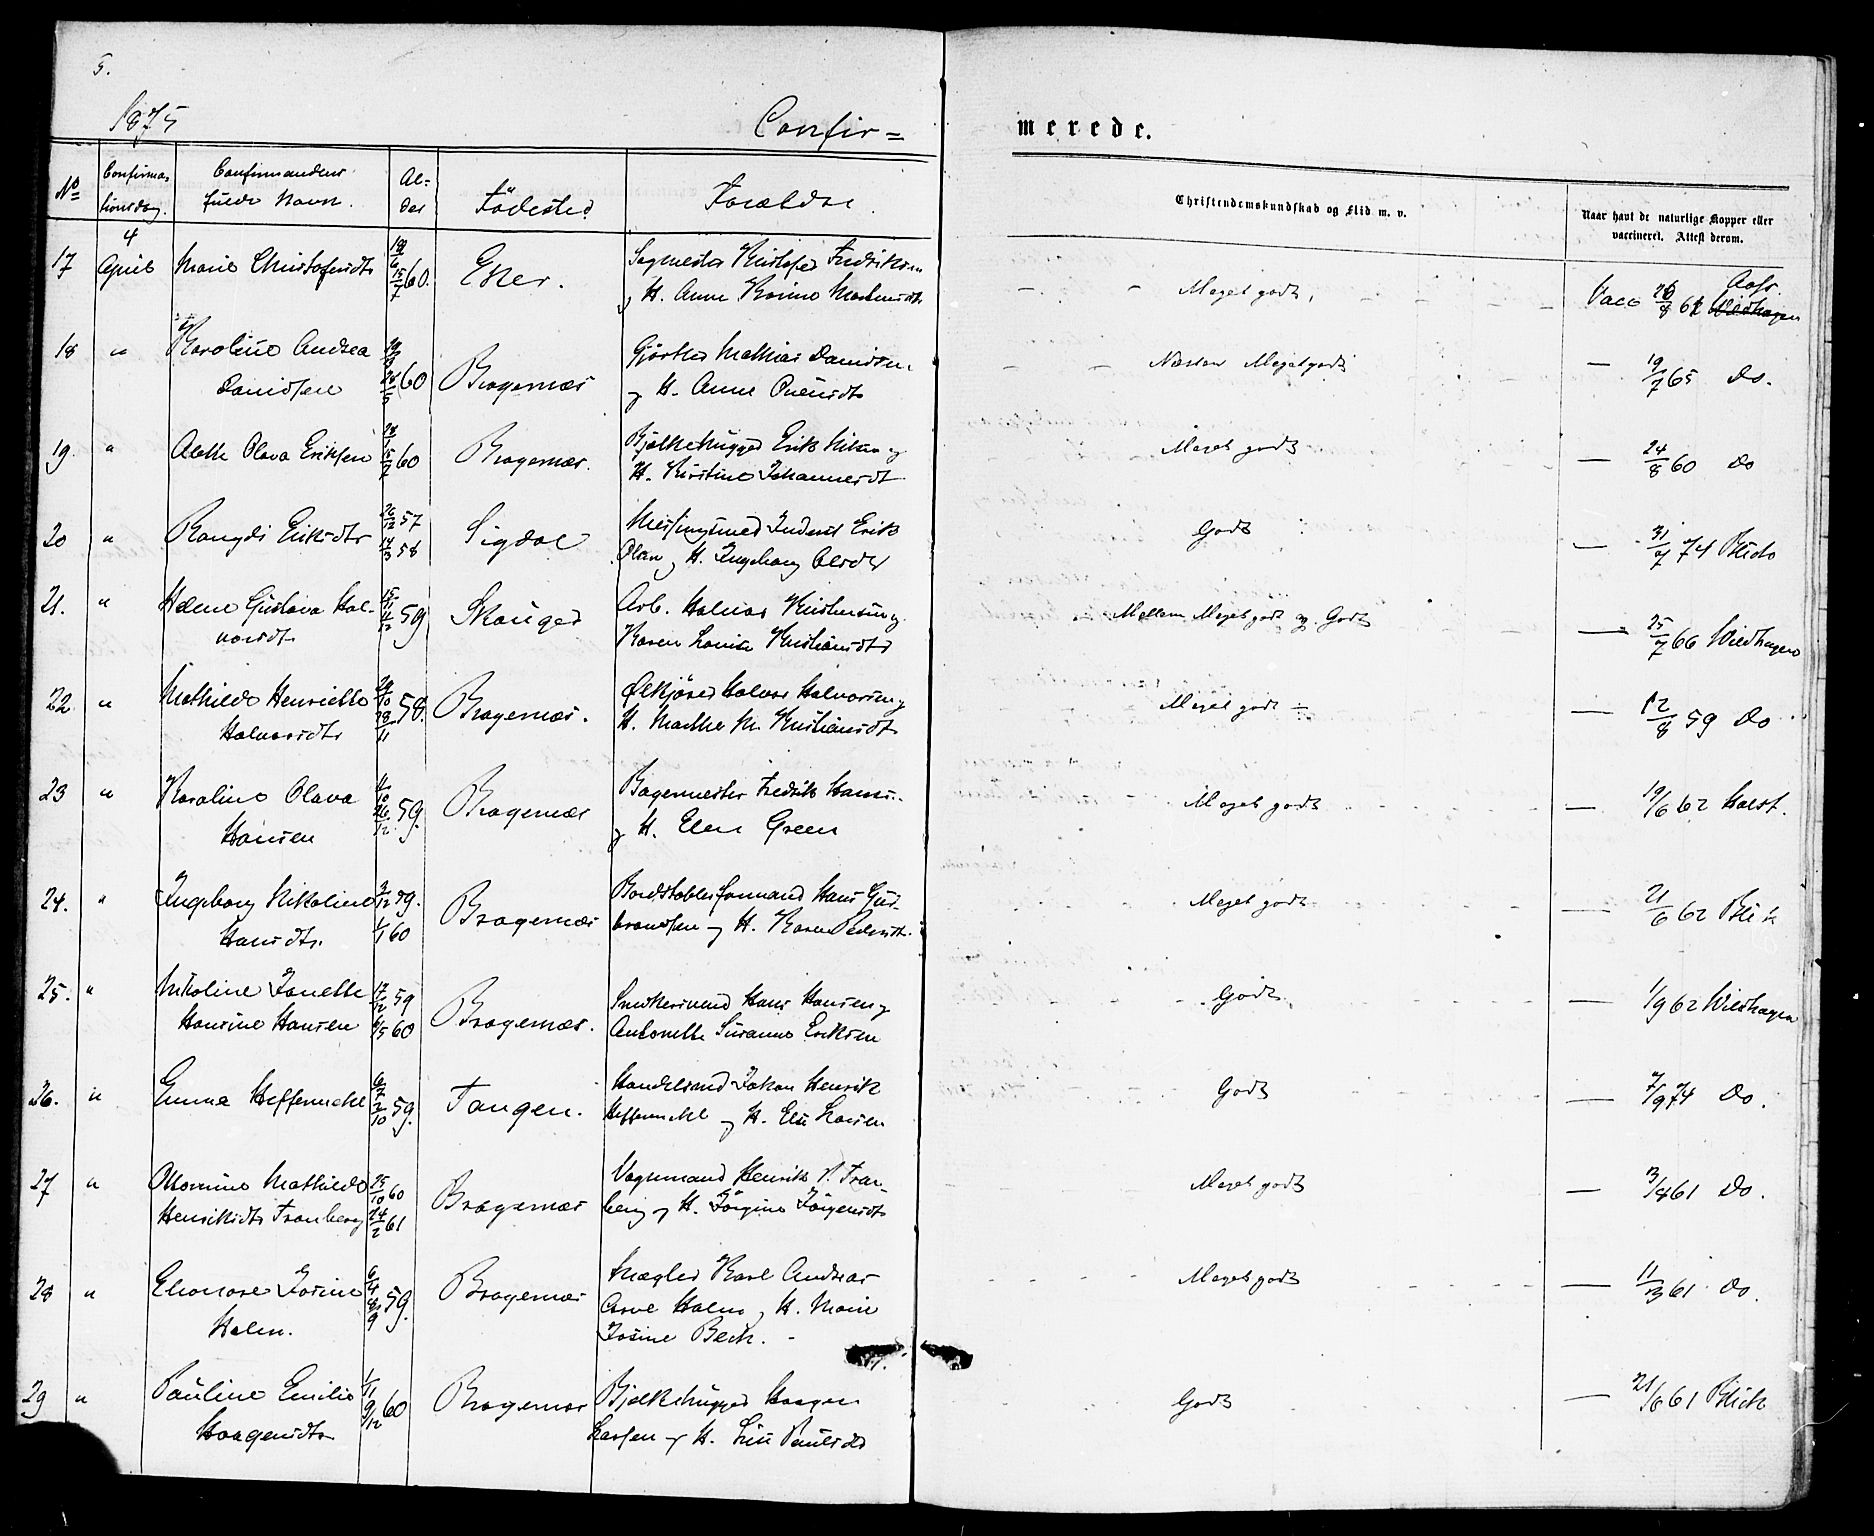 5.
1875
Confir=
merede.
No
Confirma-
tionsdag.
Confirmandens
fulde Navn.
Al-
der
Födested
Forældre.
Christendomskundskab og Flid m. v.
Naar havt de naturlige Kopper eller
vaccineret. Attest derom.
17
4
April
Marie Christofersdtr
60.
Eker.
Sagmester Kristofer Fredriksen
og H. Anne Karine
Meget godt.
Vacc
18
"
Karoline Andrea
Davidsen
60
Bragernæs
Gjörtler Mathias Davidsen
og H. Anne
Næsten Meget godt
— 19/7 65 Do.
19.
"
Alette Olava Eriksen
60
Bragernæs.
Bjelkehugger Erik
H. Kirstine Johannesdt
Meget godt
— 24/8 60 Do
20
"
Rangdi Eriksdtr
57
58
Sigdal
Erik
Olsen og H. Ingeborg Olsdtr
Godt
— 31/7 74 Blich
21.
"
Helene Gustava Hal-
vorsdtr
59
Skouger
Arb. Halvor
Karen Lovise Kristiansdtr
Mellem Meget godt og Godt
— 25/7 66 Wildhagen
22
"
Mathilde Henriette
Halvorsdtr
58.
Bragernæs.
Ølkjører Halvor Halvorsen og
H. Marthe M. Kristiansdtr
Meget godt ÷
— 12/8 59 Do
23
"
Karoline Olava
Hansen
59.
Bragernæs
Bagermester Fredrik Hansen
og H. Elen Green
Meget godt
— 19/6 62 Holst.
24.
"
Ingeborg Nikoline
Hansdtr.
2/12 59.
1/1 60
Bragernæs
Bordstablerformand Hans Gul-
brandsen og H. Karen Pedersdtr.
Meget godt
— 21/6 62 Blich
25.
"
Nikoline Janette
Hansine Hansen
17/12 59
60
Bragernæs.
Snedkersvend Hans Hansen og
Antonette Susanne Eriksen
Godt
— 1/9 62 Wildhagen
26.
"
Emma Heffermehl
59.
Tangen.
Handelsmand Johan Henrik
Heffermehl og H. Else Larsen
Godt
— 7/9 74 Do.
27
"
Mathilde
Henriksdtr Tranberg
25/10 60
24/2 61
Bragernæs
Vognmand Henrik P. Tran-
berg og H. Jörgine Jörgensdtr
Meget godt
— Do.
28
"
Elonore Josine
Holm.
59.
Bragernæs
Mægler Karl Andreas
Holm og H. Marie
Josine Bech.
Meget godt
— 11/3 61 Do.
29
"
Pauline Emilie
Haagensdtr
1/11
9/12 60
Bragernæs
Bjelkehugger Haagen
Larsen og H. Lise Paulsdtr
Godt
— 21/6 61 Blich